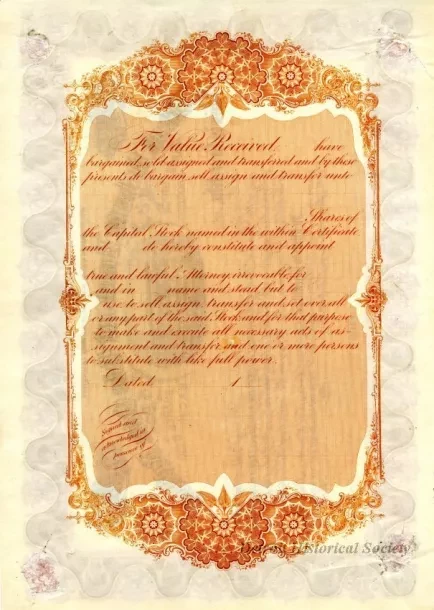 For Value Received have
bargained, sold assigned and transferred and by these
presents do bargain, sell, assign and transfer unto
Shares of
the Capital Stock named in the within Certificate
and do hereby constitute and appoint
true and lawful Attorney irrevocable for
and in name and stead but to
use to sell assign, transfer and set over all
or any part of the said Stock and for that purpose
to make and execute all necessary acts of as-
signment and transfer and one or more persons
to substitute with like full power.
Dated 1
Signed and
acknowledged in
presence of
Detroit Historical Society